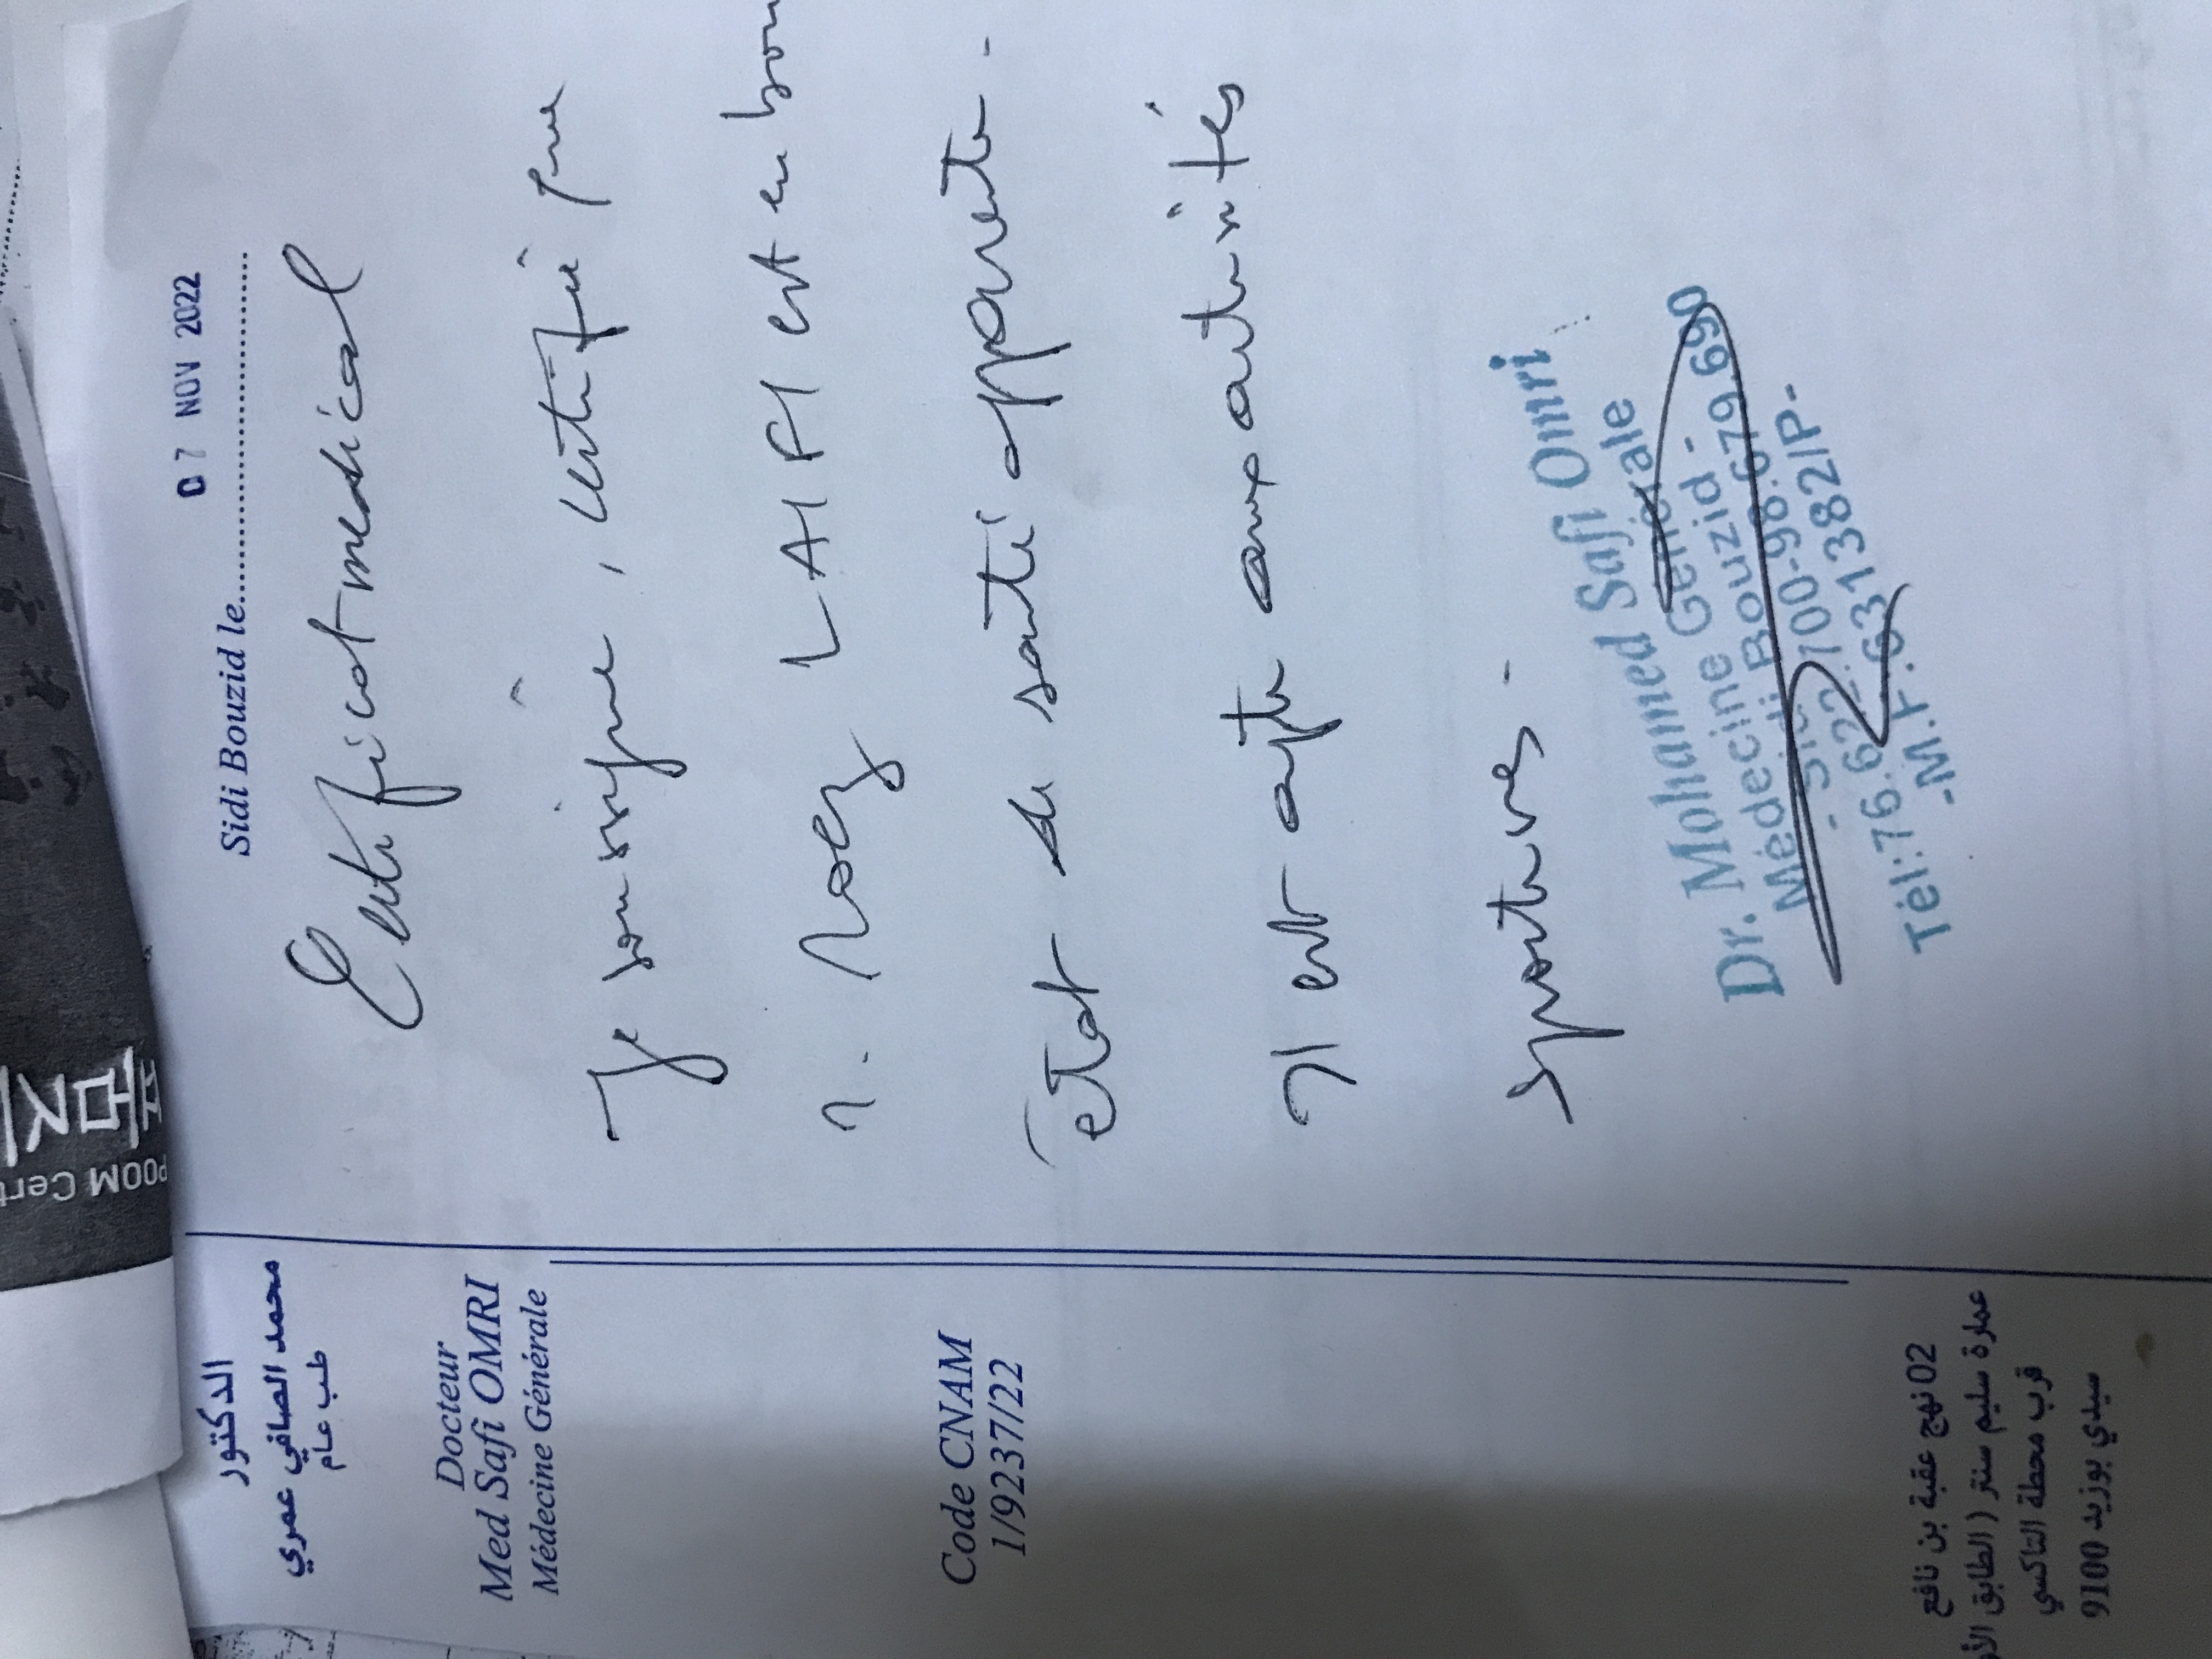 الدكتور
محمد الصافي عمري
طب عام
Docteur
Med Safi OMRI
Médecine Générale
Code CNAM
1/9237/22
02 نهج عقبة بن نافع
عمارة سليم سنتر ( الطابق الأو
قرب محطة التاكسي
سيدي بوزيد 9100
Sidi Bouzid le..........
07 NOV 2022
Certificat medical
Je soussigné, certifie que
LAIFI est en bon
état de santé apparente -
Il est apte aux activités
sportives -
Dr. Mohamed Safi Omri
Médecine Genérale
Médecine Bouzid -
Tél:76.622.100-98.679.690
-M.F.:631382/P-
POOM Cert